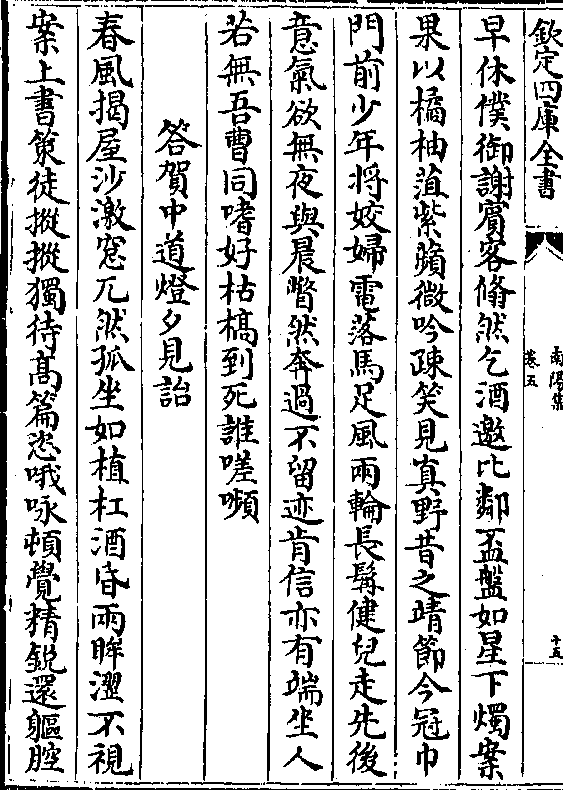 欽定四庫全書
南陽集
卷五
十五
早休僕御謝賓客翛然乞酒邀比鄰盃盤如星下燭案
果以橘柚菹紫蘋微吟疎笑見真野昔之靖節今冠巾
門前少年將姣婦電落馬足風雨輪長髯健兒走先後
意氣欲無夜與晨瞥然奔過不留迹肯信亦有端坐人
若無吾曹同嗜好枯槁到死誰嗟嚬
答賀中道燈夕見詒
春風揭屋沙激窓兀然孤坐如植杠酒昏兩眸澀不視
案上書策徒摐摐獨待髙篇恣哦咏頓覺精銳還軀腔